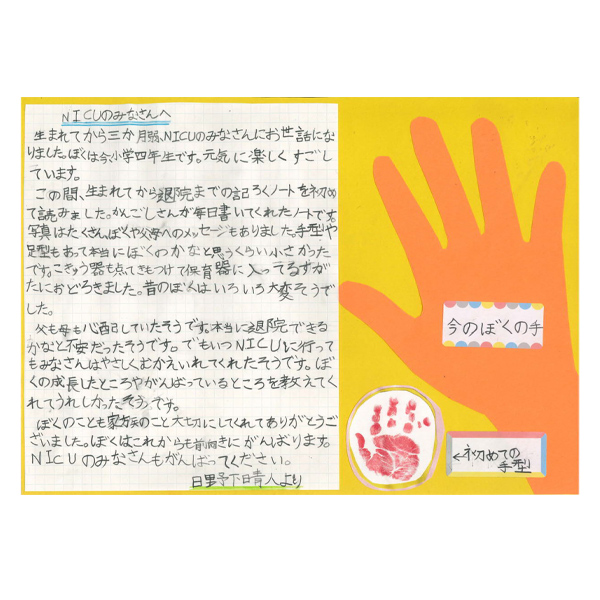 NICUのみなさんへ
生まれてから三か月弱、NICUのみなさんにお世話にな
りました。ぼくは今、小学四年生です。元気に楽しくすごし
ています。
この間、生まれてから退院までの記ろくノートを初め
て読みました。かんごしさんが毎日書いてくれたノートです。
写真はたくさん、ぼくや父母へのメッセージもありました。手型や
足型もあって本当にぼくのかなと思うくらい小さかった
です。こきゅう器も点てきもつけて保育器に入ってるすが
たにおどろきました。昔のぼくはいろいろ大変そうで
した。
父も母も心配していたそうです。本当に退院できる
かなと不安だったそうです。でもいつNICUに行って
もみなさんはやさしくむかえいれてくれたそうです。ぼ
くの成長したところやがんばっているところを教えてく
れてうれしかったそうです。
ぼくのことも家族のこと大切にしてくれてありがとうご
ざいました。ぼくはこれからも前向きにがんばります。
NICUのみなさんもがんばってください。
日野下晴人より
今のぼくの手
←初めての
手型